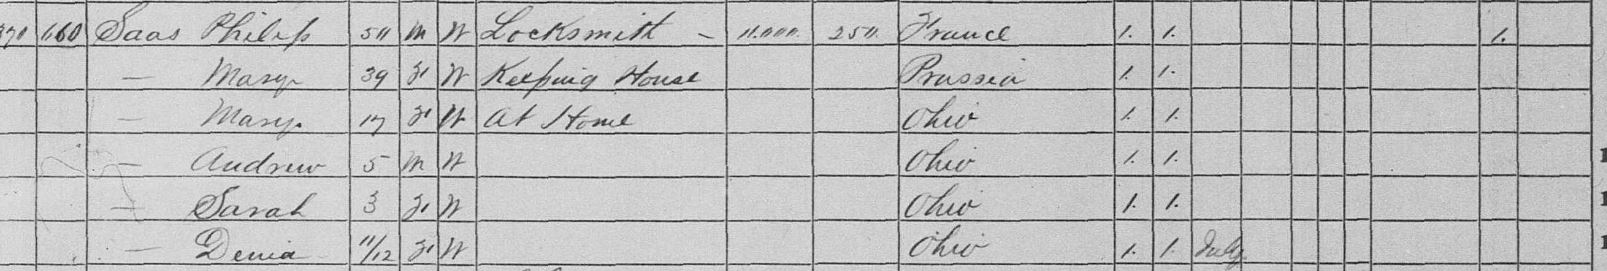 370 660 Saas Philip 50 M W Locksmith - 11.000. 250. France 1. 1. 1.
— Mary 39 F W Keeping House Prussia 1. 1.
— Mary 17 F W At Home Ohio 1. 1.
— Andrew 5 M W Ohio 1. 1. 1
— Sarah 3 F W Ohio 1. 1. 1
— Denia 11/12 F W Ohio 1. 1. July 1